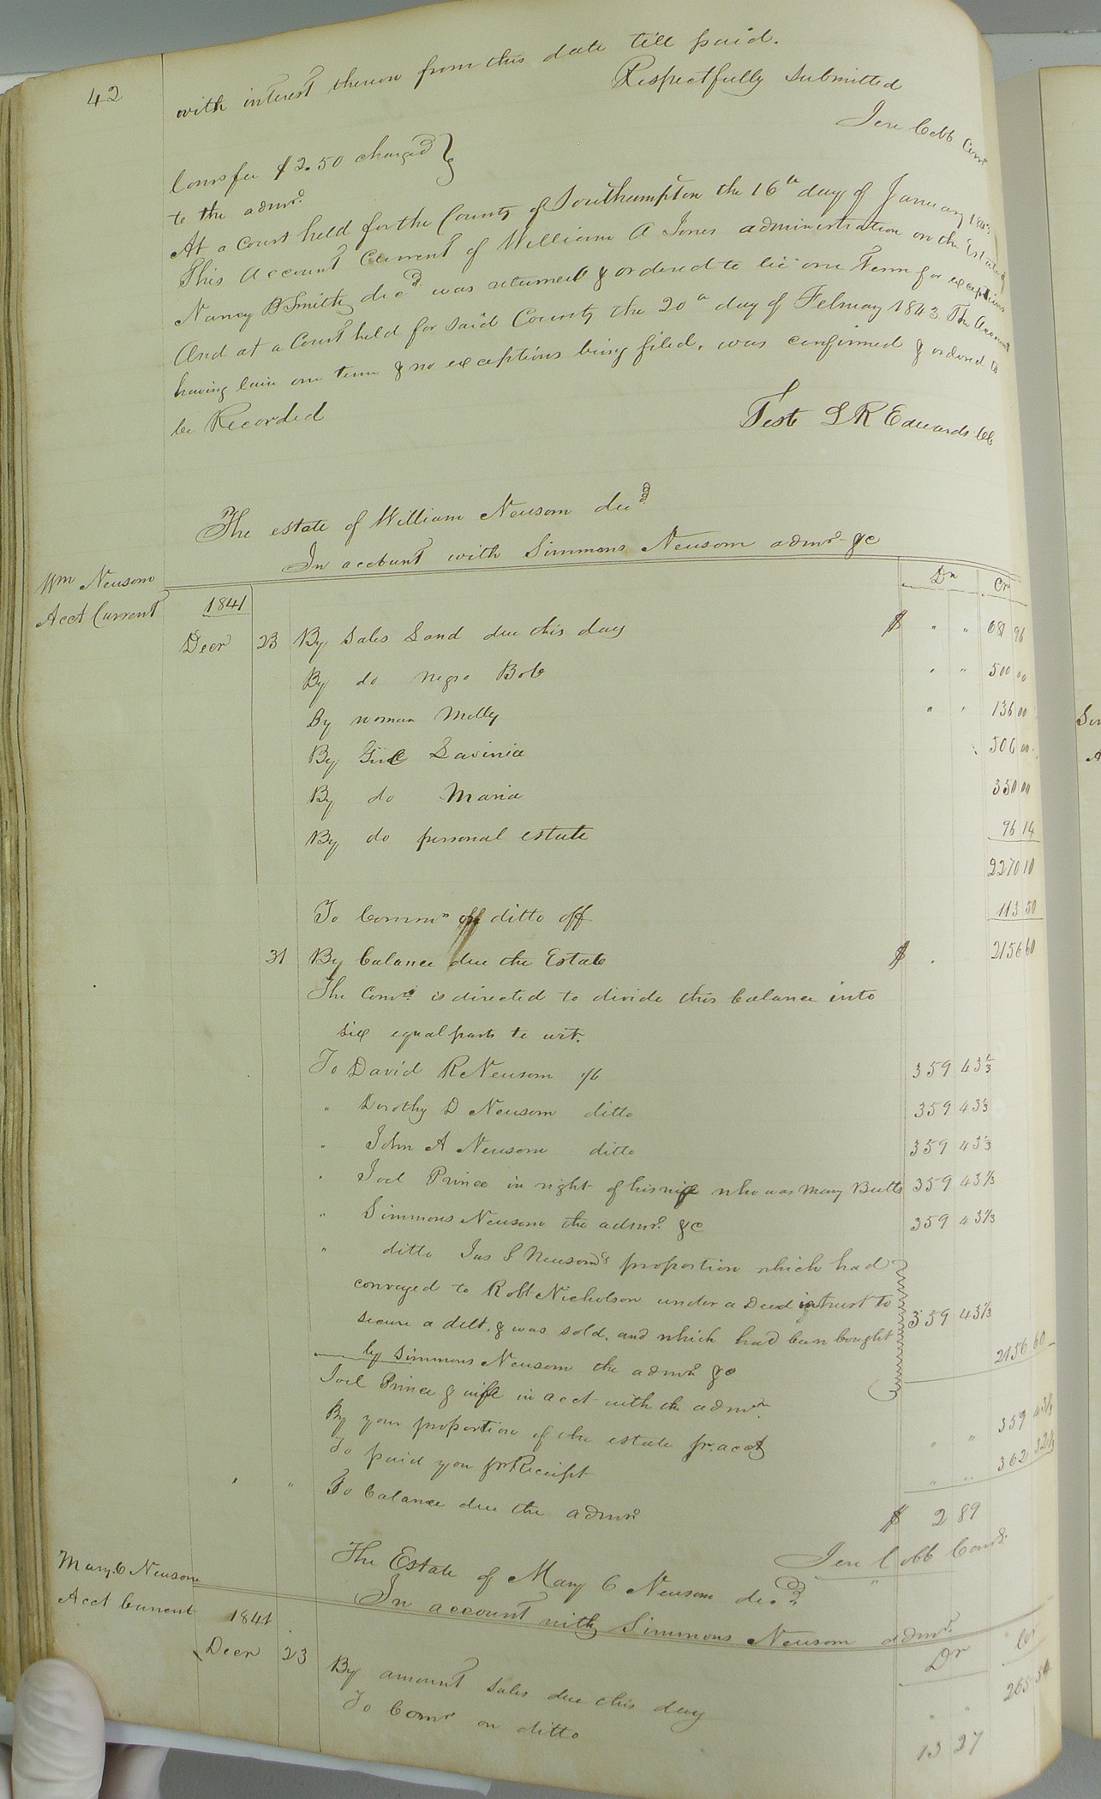 42
with interest thereon from this date till paid.
Respectfully Submitted
Jere Cobb Comr
Comrs fee $2.50 charged }
to the admr.
At a Court held for the County of Southampton the 16th day of January
This Account Current of William A Jones administration on the Estate of
Nancy B Smith decd was returned & ordered to lie one Term for exceptions
And at a Court held for said County the 20th day of February 1843. The Account
having lain one term & no exceptions being filed, was confirmed & ordered to
be Recorded
Teste L R Edwards Clk
The estate of William Newsom decd
In account with Simmons Newsom admr &c
Wm Newsom
Acct Current
Dr Cr
1841
Decr 23 By Sales Land due this day $ " " 681 96
By do negro Bob " " 500 00
By woman Milly " " 136 00
By Girl Lavinia 506 00
By do Maria 350 00
By do personal estate 96 14
2270 10
To Commn off ditto off 113 50
31 By balance due the Estate $ 2156 60
The Comr. is directed to divide this balance into
six equal parts to wit.
To David R Newsom 1/6 359 43 1/3
" Dorothy D Newsom ditto 359 43 1/3
" John A Newsom ditto 359 43 1/3
" Joel Prince in right of his wife who was Mary Butts 359 43 1/3
" Simmons Newsom the admr. &c 359 43 1/3
" ditto Jas S Newsom's proportion which had
conveyed to Robt Nicholson under a Deed in trust to
secure a debt, & was sold, and which had been bought 359 43 1/3
by Simmons Newsom the admr &c 2156 60
Joel Prince & wife in acct with the admr.
By your proportion of the estate pr. acct " " 359 43 1/3
To paid you pr Receipt " " 362 32 1/3
" " To balance due the admr $ 2 89
Jere Cobb Comr.
The Estate of Mary C Newsom decd
In account with Simmons Newsom admr.
Mary C Newsom
Acct Current
Dr Cr
1841
Decr 23 By amount sales due this day " " 265 54
To Comr on ditto 13 27